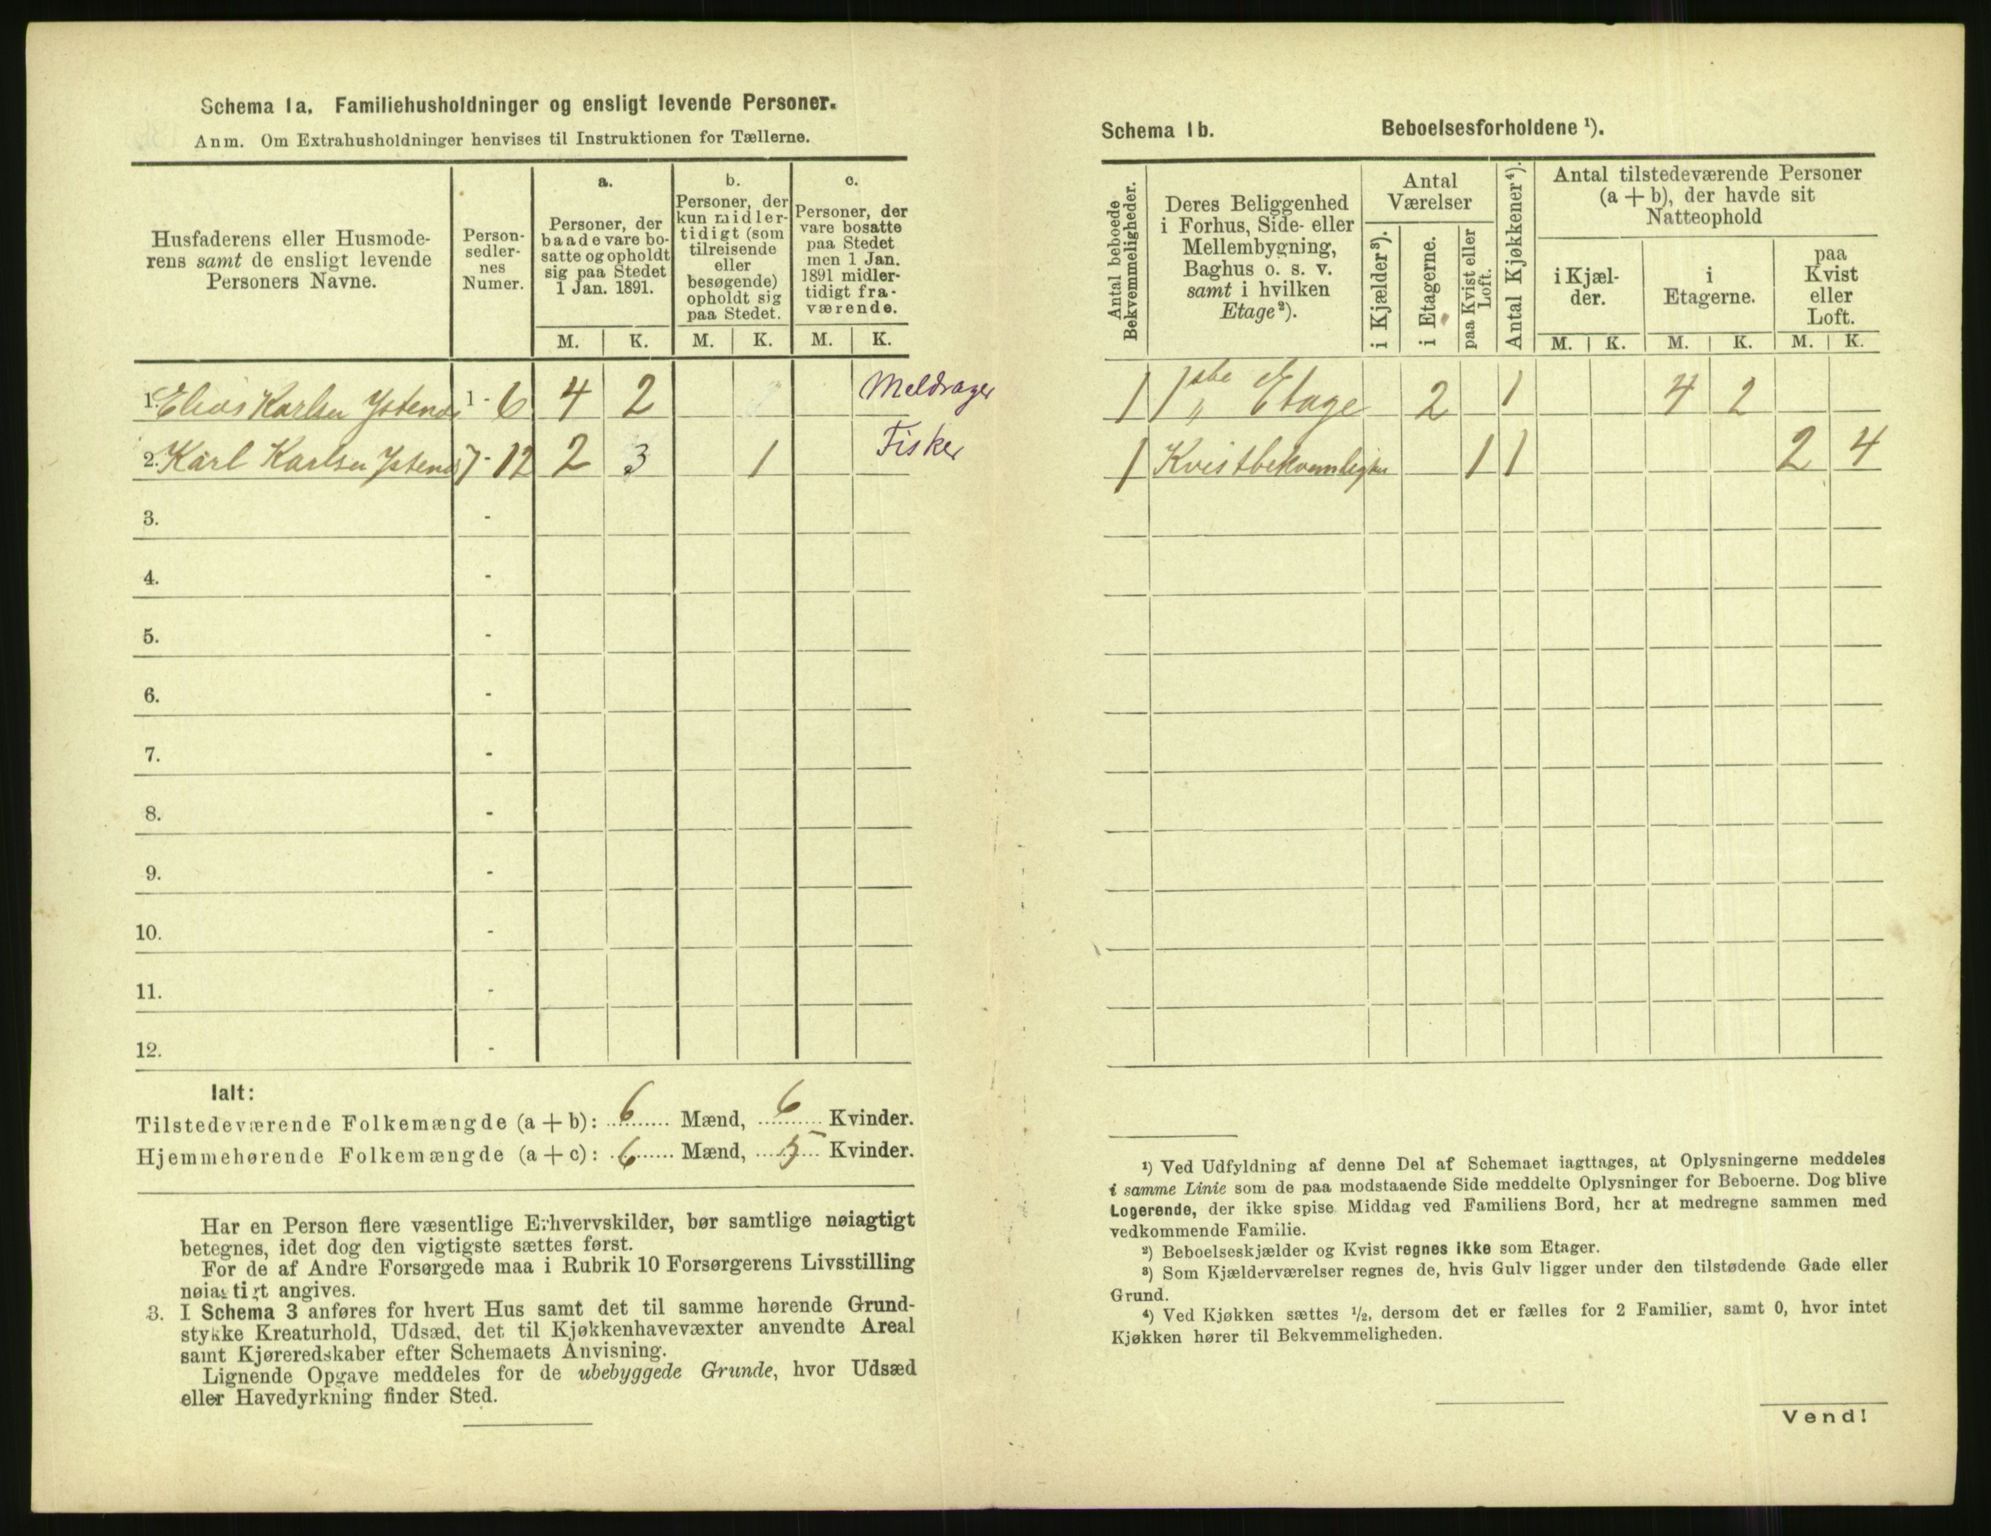 Schema 1a. Familiehusholdninger og ensligt levende Personer.
Anm. Om Extrahusholdninger henvises til Instruktionen for Tællerne.
Husfaderens eller Husmode-
rens samt de ensligt levende
Personers Navne.
Person-
sedler-
nes
Numer.
a.
Personer, der
baade vare bo-
satte og opholdt
sig paa Stedet
1 Jan. 1891.
b.
Personer, der
kun midler-
tidigt (som
tilreisende
eller
besøgende)
opholdt sig
paa Stedet.
c.
Personer, der
vare bosatte
paa Stedet
men 1 Jan.
1891 midler-
tidigt fra-
værende.
M. K. M. K. M. K.
1. Elias Karlsen Ystenæs 1 - 6 4 2 Meldrager
2. Karl Karlsen Ystenæs 7 - 12 2 3 1 Fisker
3. -
4. -
5. -
6. -
7. -
8. -
9. -
10. -
11. -
12. -
Ialt:
Tilstedeværende Folkemængde (a + b): 6 Mænd, 6 Kvinder.
Hjemmehørende Folkemængde (a + c): 6 Mænd, 5 Kvinder.
Har en Person flere væsentlige Erhvervskilder, bør samtlige nøiagtigt
betegnes, idet dog den vigtigste sættes først.
For de af Andre Forsørgede maa i Rubrik 10 Forsørgerens Livsstilling
nøiagtigt angives.
3. I Schema 3 anføres for hvert Hus samt det til samme hørende Grund-
stykke Kreaturhold, Udsæd, det til Kjøkkenhavevæxter anvendte Areal
samt Kjøreredskaber efter Schemaets Anvisning.
Lignende Opgave meddeles for de ubebyggede Grunde, hvor Udsæd
eller Havedyrkning finder Sted.
Schema 1b. Beboelsesforholdene ¹).
Antal beboede
Bekvemmeligheder.
Deres Beliggenhed
i Forhus, Side- eller
Mellembygning,
Baghus o. s. v.
samt i hvilken
Etage²).
Antal
Værelser
i Kjælder³).
i Etagerne.
paa Kvist eller
Loft.
Antal Kjøkkener⁴).
Antal tilstedeværende Personer
(a + b), der havde sit
Natteophold
i Kjæl-
der.
i
Etagerne.
paa
Kvist
eller
Loft.
M. K. M. K. M. K.
1 1ste Etage 2 1 4 2
1 Kvistbekvemligher 1 1 2 4
¹) Ved Udfyldning af denne Del af Schemaet iagttages, at Oplysningerne meddeles
i samme Linie som de paa modstaaende Side meddelte Oplysninger for Beboerne. Dog blive
Logerende, der ikke spise Middag ved Familiens Bord, her at medregne sammen med
vedkommende Familie.
²) Beboelseskjælder og Kvist regnes ikke som Etager.
³) Som Kjælderværelser regnes de, hvis Gulv ligger under den tilstødende Gade eller
Grund.
⁴) Ved Kjøkken sættes ½, dersom det er fælles for 2 Familier, samt 0, hvor intet
Kjøkken hører til Bekvemmeligheden.
Vend!